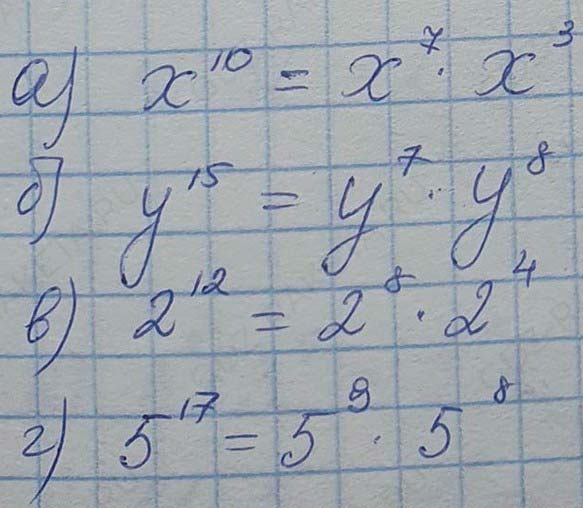 а) x¹⁰ = x⁷ · x³
б) y¹⁵ = y⁷ · y⁸
в) 2¹² = 2⁸ · 2⁴
г) 5¹⁷ = 5⁹ · 5⁸